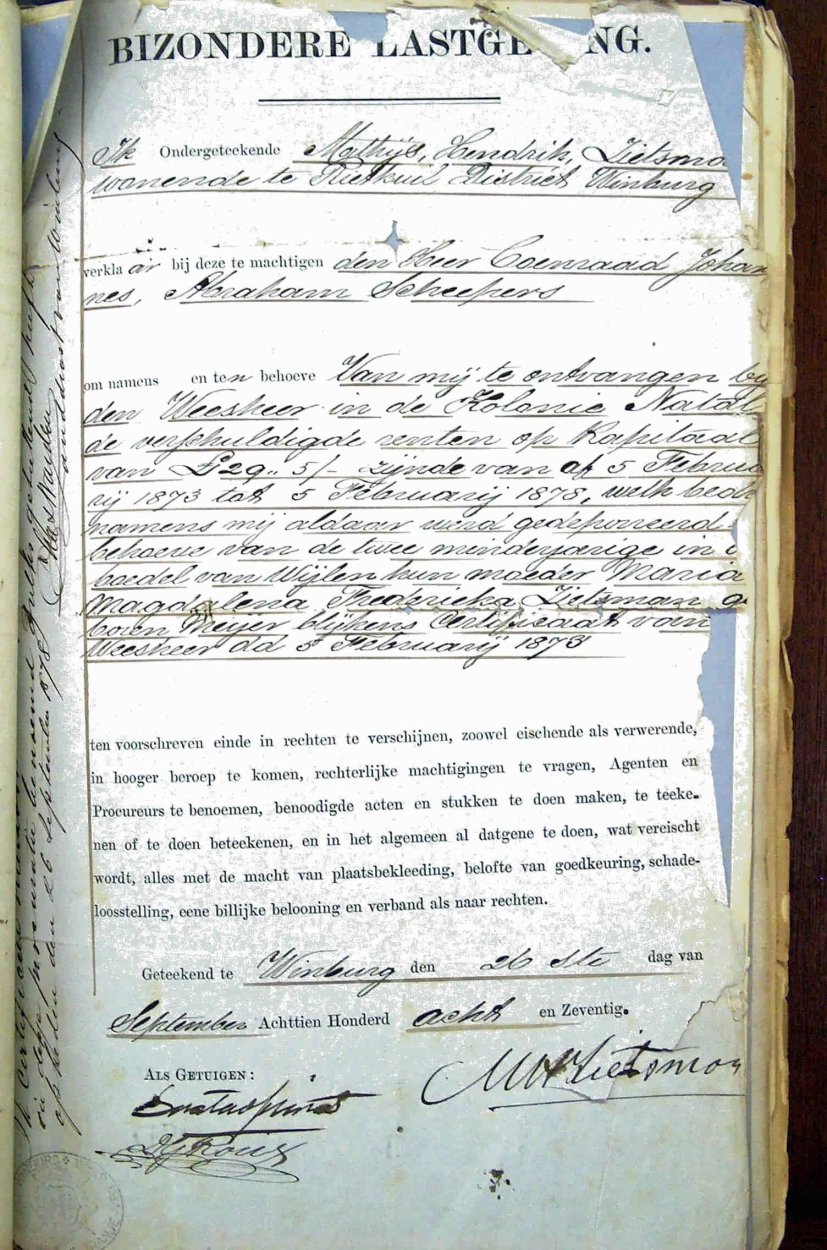 BIZONDERE LASTGE NG.
Ik Ondergeteekende Mathijs, Hendrik, Zietsma
wonende te Rietkuil District Winburg
verkla ar bij deze te machtigen den Heer Coenraad Johan
nes, Abraham Scheepers
om namens en ten behoeve Van mij te ontvangen by
den Weesheer in de Kolonie Natal
de verschuldigde renten op Kapitaal
van £29.. 5/- zijnde van af 5 Februa
rij 1873 tot 5 Februarij 1878, welk bedr
namens mij aldaar werd gedeponeerd
behoeve van de twee minderjarige in d
boedel van Wijlen hun moeder Maria
Magdalena Frederieka Zietsman ge
boren Meyer blijkens Certificaat van
Weesheer dd 5 Februarij 1873
ten voorschreven einde in rechten te verschijnen, zoowel eischende als verwerende,
in hooger beroep te komen, rechterlijke machtigingen te vragen, Agenten en
Procureurs te benoemen, benoodigde acten en stukken te doen maken, te teeke-
nen of te doen beteekenen, en in het algemeen al datgene te doen, wat vereischt
wordt, alles met de macht van plaatsbekleeding, belofte van goedkeuring, schade-
loosstelling, eene billijke belooning en verband als naar rechten.
Geteekend te Winburg den 26 ste dag van
September Achttien Honderd acht en Zeventig.
ALS GETUIGEN:
M H Zietsman
Ik Certificeer
in deze procuratie benoemd zulks geteekend heeft
op heden den 26 September 1878
Landdrost van Winburg